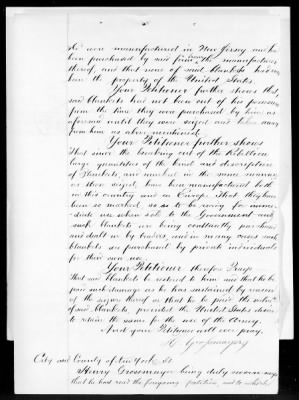 &c were manufactured in New Jersey and he
been purchased by said firm from the manufacturer
thereof, and that none of said blankets had ever
been the property of the United States.
Your Petitioner further shows that
said blankets had not been out of his possession
from the time they were purchased by him as
aforesaid until they were seized and taken away
from him as above mentioned.
Your Petitioner further shows
That since the breaking out of the Rebellion
large quantities of the kind and description
of Blankets, and marked in the same manner
as those seized, have been manufactured both
in this country and in Europe. That they have
been so marked so as to be ready for imme-
diate use when sold to the Government and
such blankets are being constantly purchased
and dealt in by traders and in many cases such
blankets are purchased by private individuals
for their own use.
Your Petitioner therefore Prays
That said Blankets be restored to him and that he be
paid such damage as he has sustained by reason
of the seizure thereof or that he be paid the value
of said Blankets provided the United States desire
to retain the same for the use of the Army.
And your Petitioner will ever pray.
H. Grossmayer
City and County of New York, SS.
Henry Grossmayer being duly sworn says
that he has read the foregoing petition, and to which